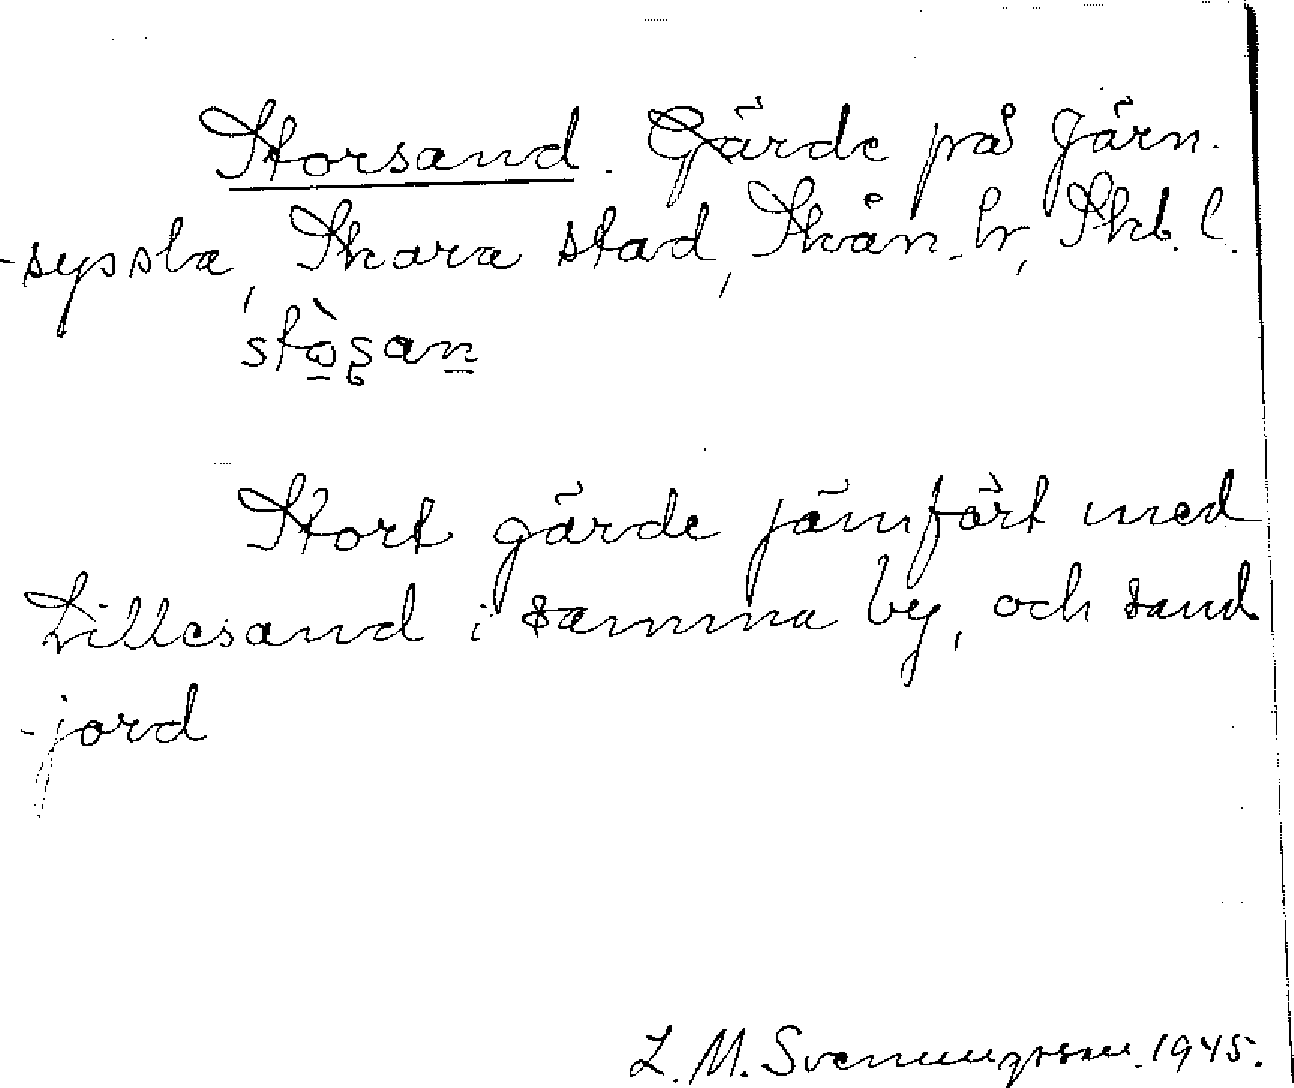 Storsand. Gärde på Järn-
-syssla, Skara stad, Skån. hr, Skb. l.
stò̱ʂan̲
Stort gärde jämfört med
Lillesand i samma by, och sand
-jord
L. M. Svenungsson. 1945.